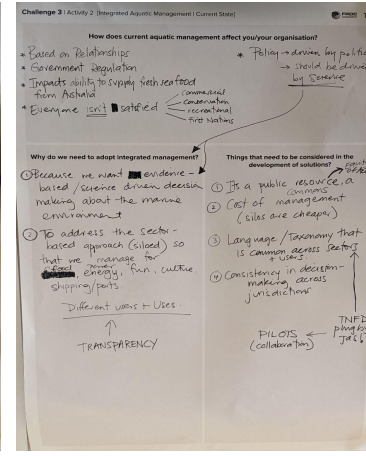 Challenge 3 | Activity 2 [Integrated Aquatic Management | Current State]
How does current aquatic management affect you/your organisation?
* Based on Relationships
* Government Regulation
* Impacts ability to supply fresh seafood
from Australia
* Everyone isn't satisfied
commercial
conservation
recreational
First Nations
* Policy → driven by politic
→ should be drive
by Science
Why do we need to adopt integrated management?
① Because we want evidence-
based / science driven decision
making about the marine
environment
② To address the sector-
based approach (siloed) so
that we manage for
food, energy, fun, culture,
shipping/ports.
Different users + Uses
↑
TRANSPARENCY
Things that need to be considered in the
development of solutions?
① Its a public resource, a
commons
② Cost of management
(silos are cheaper)
③ Language / Taxonomy that
is common across sectors
+ users
④ Consistency in decision-
making across
jurisdictions
PILOTS ←
(collaboration)
TNFD